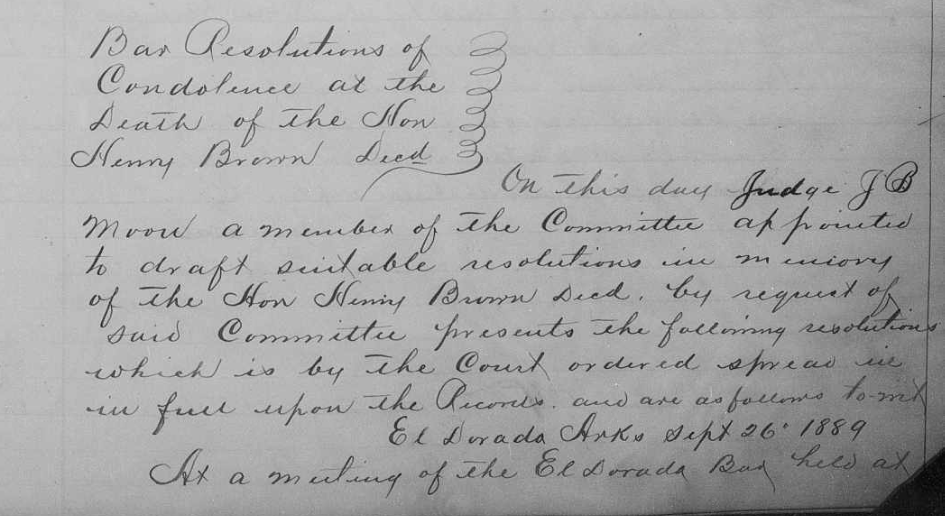 Bar Resolutions of
Condolence at the
Death of the Hon
Henry Brown Decd
On this day Judge J B
Moore a member of the Committee appointed
to draft suitable resolutions in memory
of the Hon Henry Brown Decd. by request of
said Committee presents the following resolutions
which is by the Court ordered spread in
in full upon the Records. and are as follows to-wit
El Dorada Arks Sept 26" 1889
At a meeting of the El Dorada Bar held at